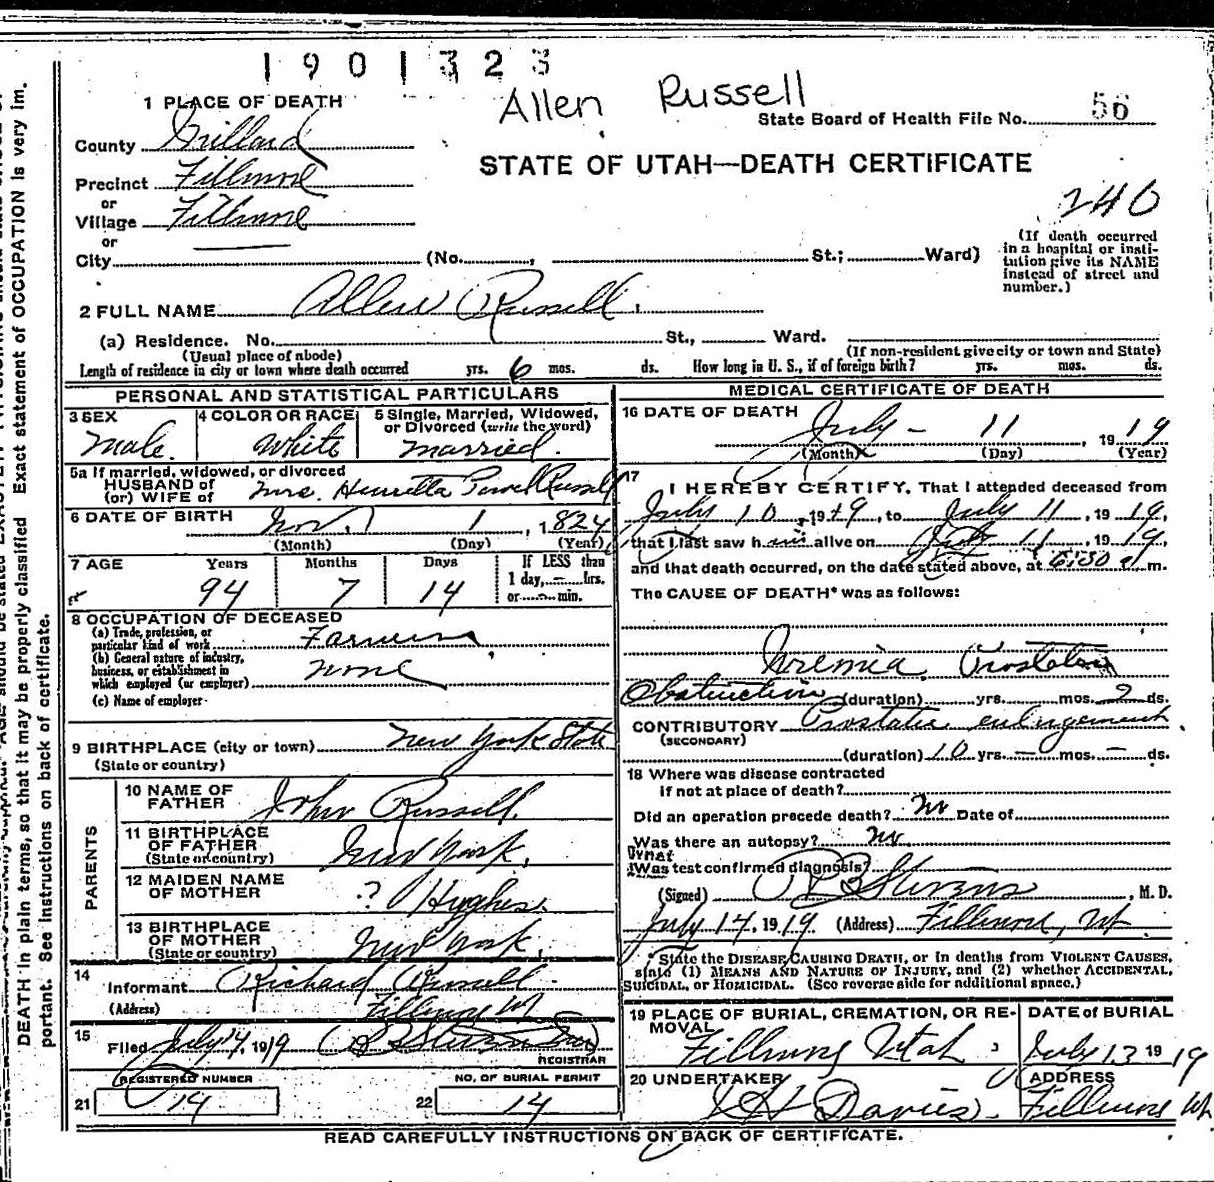 1901323
Allen Russell
1 PLACE OF DEATH
State Board of Health File No. 56
County Millard
STATE OF UTAH—DEATH CERTIFICATE
Precinct Fillmore
or
240
Village Fillmore
or
City (No. , St.; Ward)
(If death occurred in a hospital or insti-
tution give its NAME instead of street and number.)
2 FULL NAME Allen Russell
(a) Residence. No. St., Ward.
(Usual place of abode) (If non-resident give city or town and State)
Length of residence in city or town where death occurred yrs. 6 mos. ds. How long in U. S., if of foreign birth? yrs. mos. ds.
PERSONAL AND STATISTICAL PARTICULARS
3 SEX Male.
4 COLOR OR RACE White
5 Single, Married, Widowed, or Divorced (write the word) Married.
5a If married, widowed, or divorced
HUSBAND of
(or) WIFE of Mrs. Henrietta Powell Russell
6 DATE OF BIRTH Nov. 1, 1824
(Month) (Day) (Year)
7 AGE Years Months Days If LESS than
94 7 14 1 day, — hrs.
or min.
8 OCCUPATION OF DECEASED
(a) Trade, profession, or
particular kind of work Farming
(b) General nature of industry,
business, or establishment in
which employed (or employer) none
(c) Name of employer
9 BIRTHPLACE (city or town) New York State
(State or country)
PARENTS
10 NAME OF FATHER John Russell.
11 BIRTHPLACE OF FATHER (State or country) New York.
12 MAIDEN NAME OF MOTHER ? Hughes.
13 BIRTHPLACE OF MOTHER (State or country) New York.
14 Informant Richard Russell.
(Address) Fillmore Ut
15 Filed July 14, 1919
REGISTRAR
REGISTERED NUMBER
21 14
NO. OF BURIAL PERMIT
22 14
MEDICAL CERTIFICATE OF DEATH
16 DATE OF DEATH July - 11, 1919
(Month) (Day) (Year)
17 I HEREBY CERTIFY, That I attended deceased from
July 10, 1919, to July 11, 1919,
that I last saw him alive on July 11, 1919,
and that death occurred, on the date stated above, at 6:30 a m.
The CAUSE OF DEATH* was as follows:
Uremia Prostatic
Obstruction (duration) yrs. mos. 2 ds.
CONTRIBUTORY Prostatic enlargement
(SECONDARY)
(duration) 10 yrs. — mos. — ds.
18 Where was disease contracted
if not at place of death?
Did an operation precede death? No Date of
Was there an autopsy? no
What
Was test confirmed diagnosis?
(Signed) Stevens, M. D.
July 14, 1919 (Address) Fillmore, Ut
* State the DISEASE CAUSING DEATH, or in deaths from VIOLENT CAUSES,
state (1) MEANS AND NATURE OF INJURY, and (2) whether ACCIDENTAL,
SUICIDAL, or HOMICIDAL. (See reverse side for additional space.)
19 PLACE OF BURIAL, CREMATION, OR RE-
MOVAL Fillmore Utah
DATE of BURIAL July 13 1919
20 UNDERTAKER Davies.
ADDRESS Fillmore Ut.
READ CAREFULLY INSTRUCTIONS ON BACK OF CERTIFICATE.
Exact statement of OCCUPATION is very im-
DEATH in plain terms, so that it may be properly classified
portant. See instructions on back of certificate.